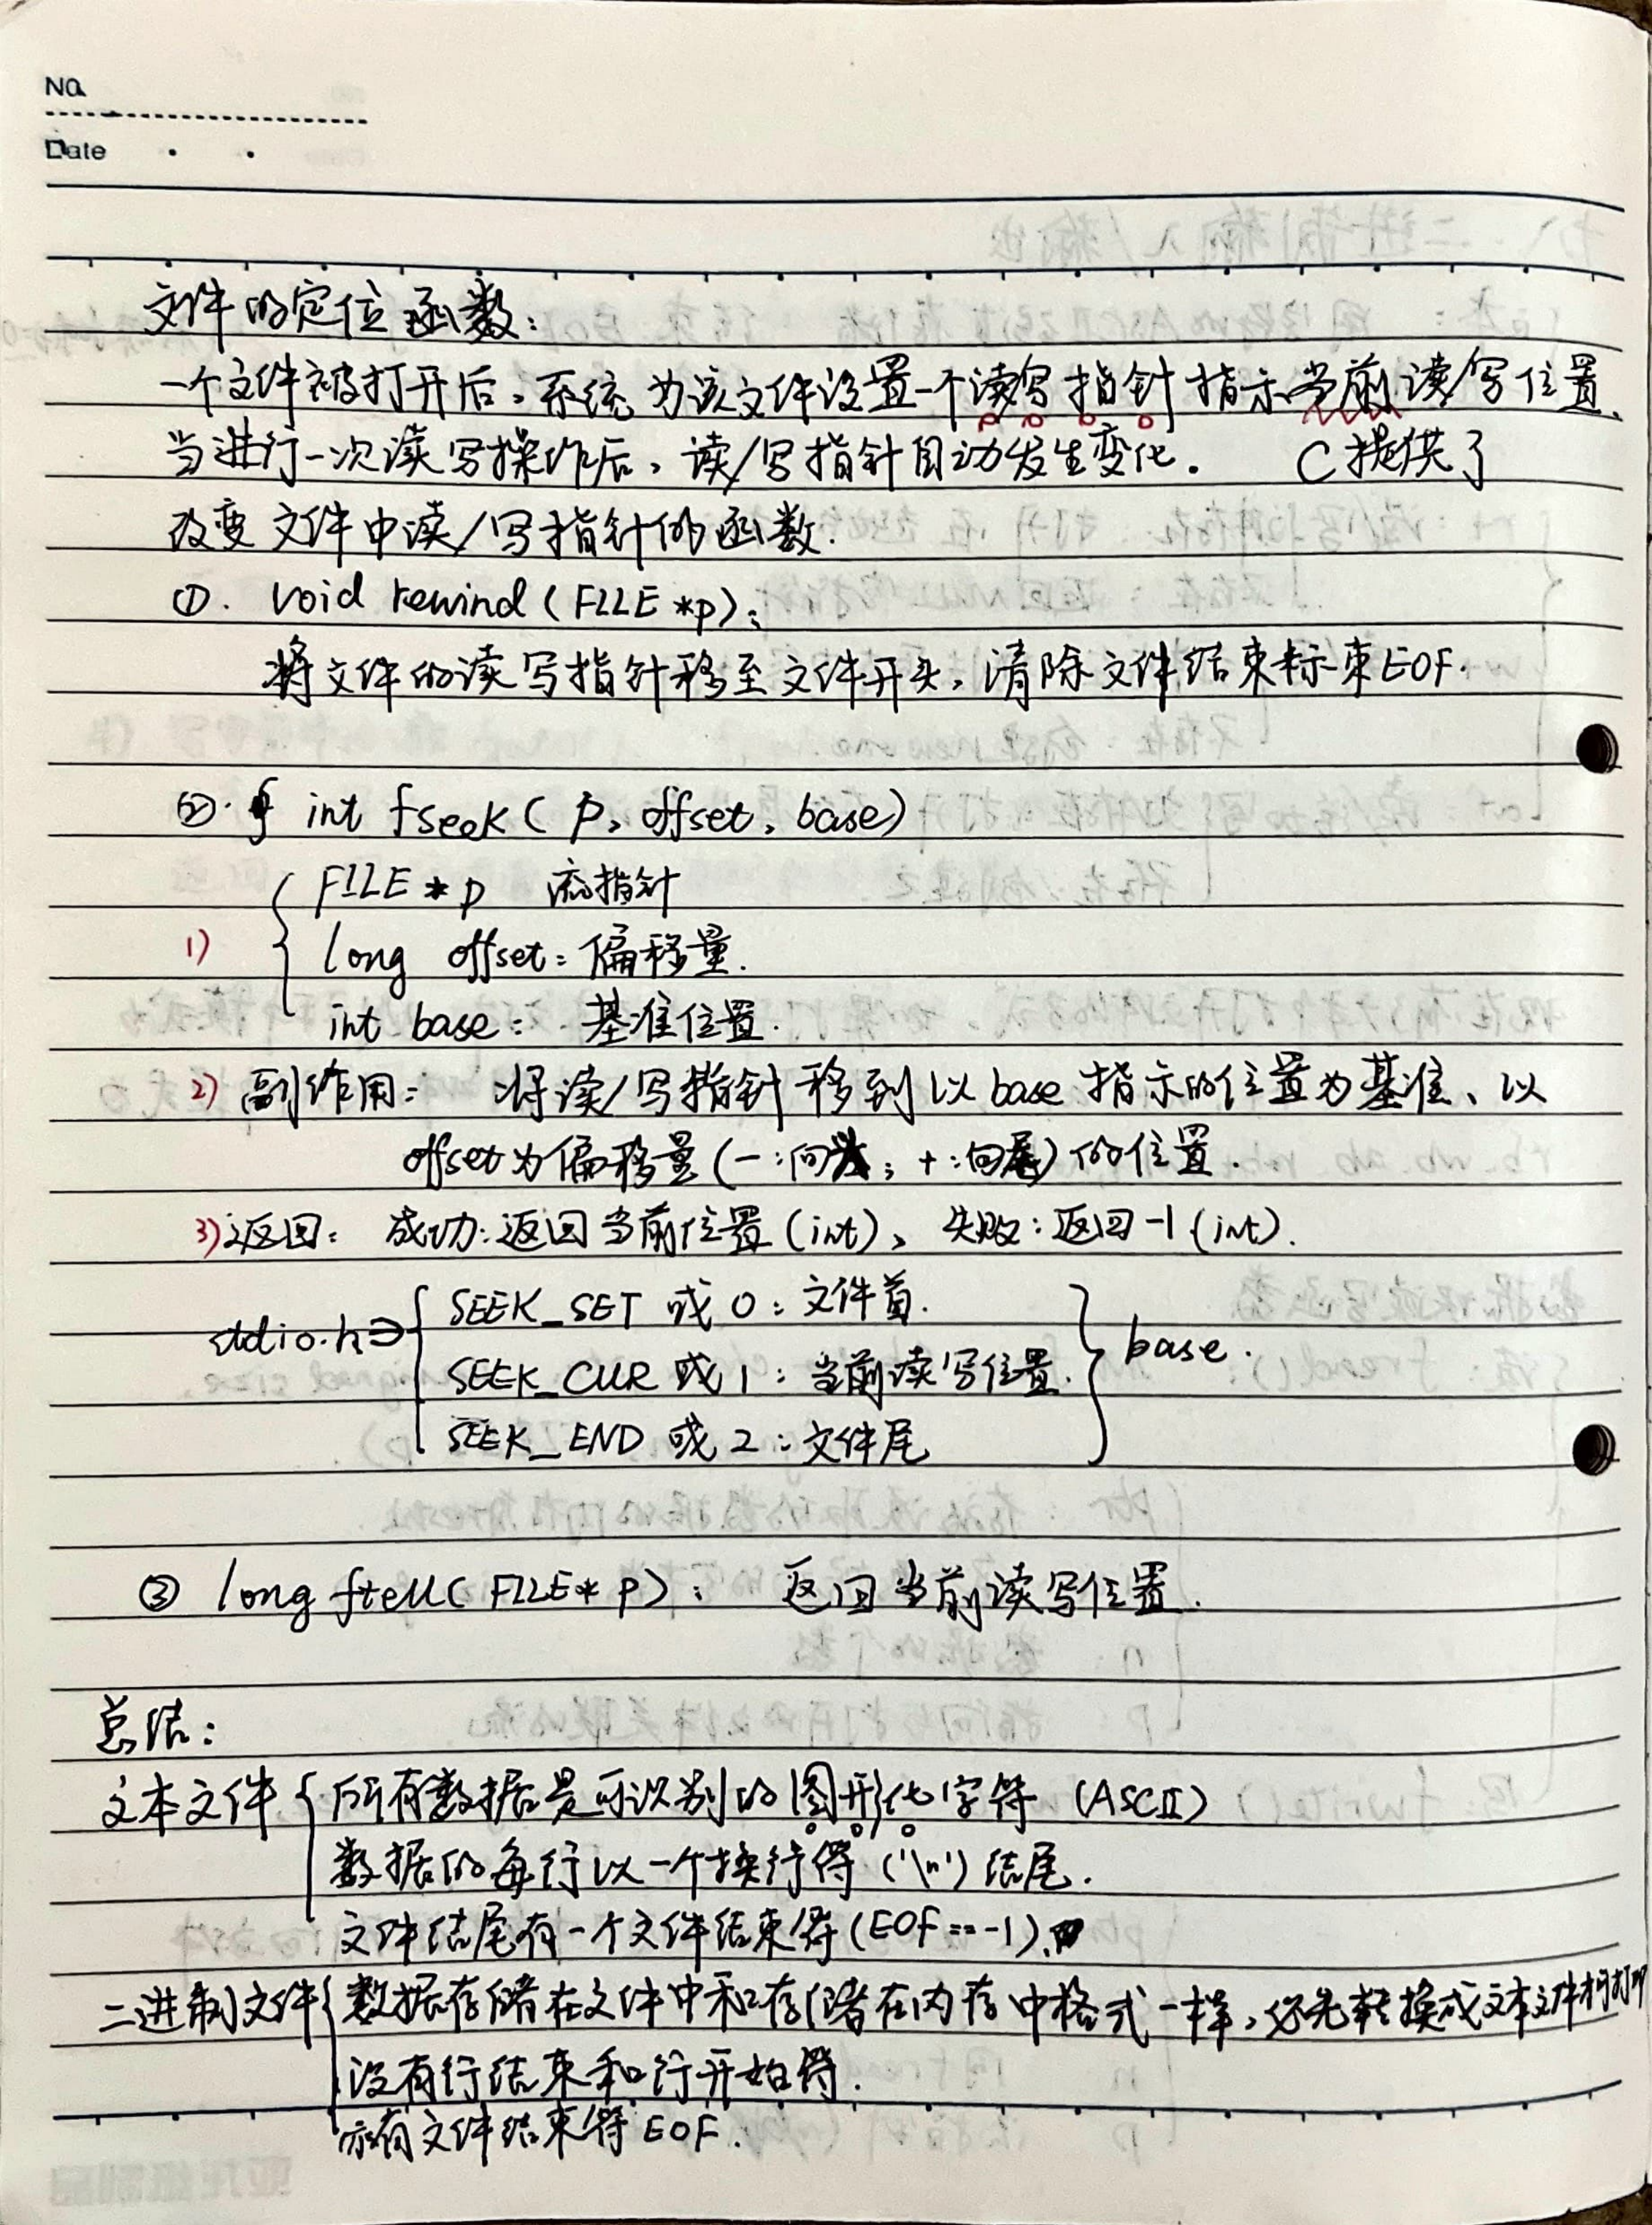 No.
Date
文件的定位函数：
一个文件被打开后，系统为该文件设置一个读写指针指示当前读/写位置、
当进行一次读写操作后，读/写指针自动发生变化。 C提供了
改变文件中读/写指针的函数.
①. void rewind (FILE *p);
将文件的读写指针移至文件开头，清除文件结束标束EOF.
②. int fseek ( p, offset, base)
FILE * p 流指针
1) long offset: 偏移量.
int base: 基准位置.
2) 副作用: 将读/写指针移到以base指示的位置为基准、以
offset为偏移量(-:向头; +:向尾)的位置.
3) 返回: 成功:返回当前位置(int)、失败:返回-1 (int).
SEEK_SET 或 0: 文件首.
stdio.h⇒ SEEK_CUR 或 1: 当前读写位置. base.
SEEK_END 或 2: 文件尾
③ long ftell( FILE* p): 返回当前读写位置.
总结:
文本文件 所有数据是可识别的图形化字符 (ASCII)
数据的每行以一个换行符('\n')结尾.
文件结尾有一个文件结束符(EOF==-1)、
二进制文件 数据存储在文件中和存储在内存中格式一样，必先转换成文本文件才可打印
没有行结束和行开始符.
亦有文件结束符EOF.